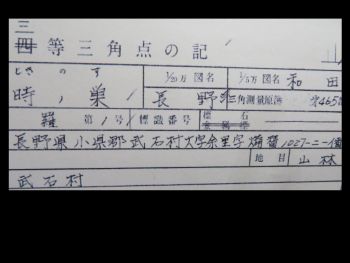 三
四等三角点の記
ときのす 1/20万図名 1/5万図名 和田
時ノ巣 長野 三角測量原簿 第465
羅 第 1 号 標識番号 標石
長野県小県郡武石村大字余里字 1027-ニ-1
地目 山林
武石村